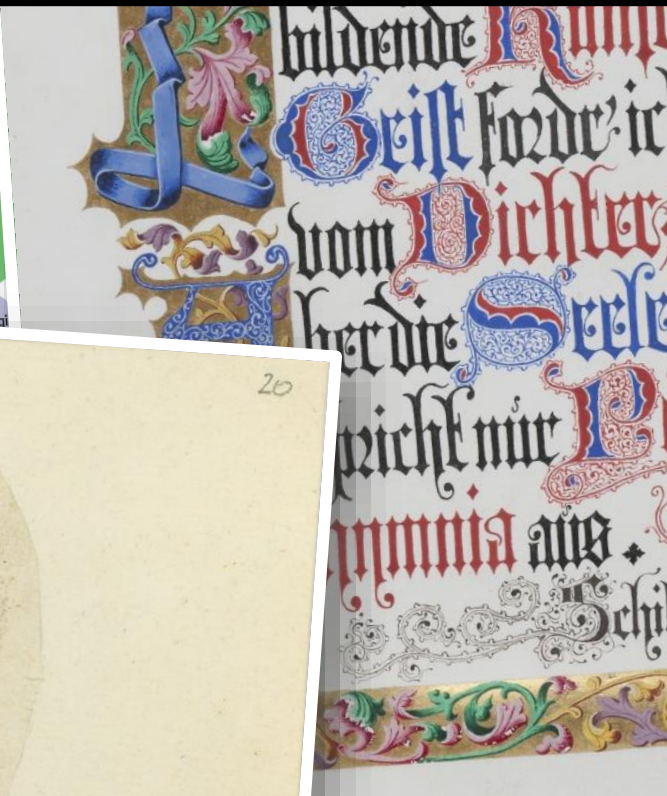 bildende Kuns
Geist fordr' ic
vom Dichter;
Aber die Seele
pricht nur Po
hymnia aus.
Schi
20